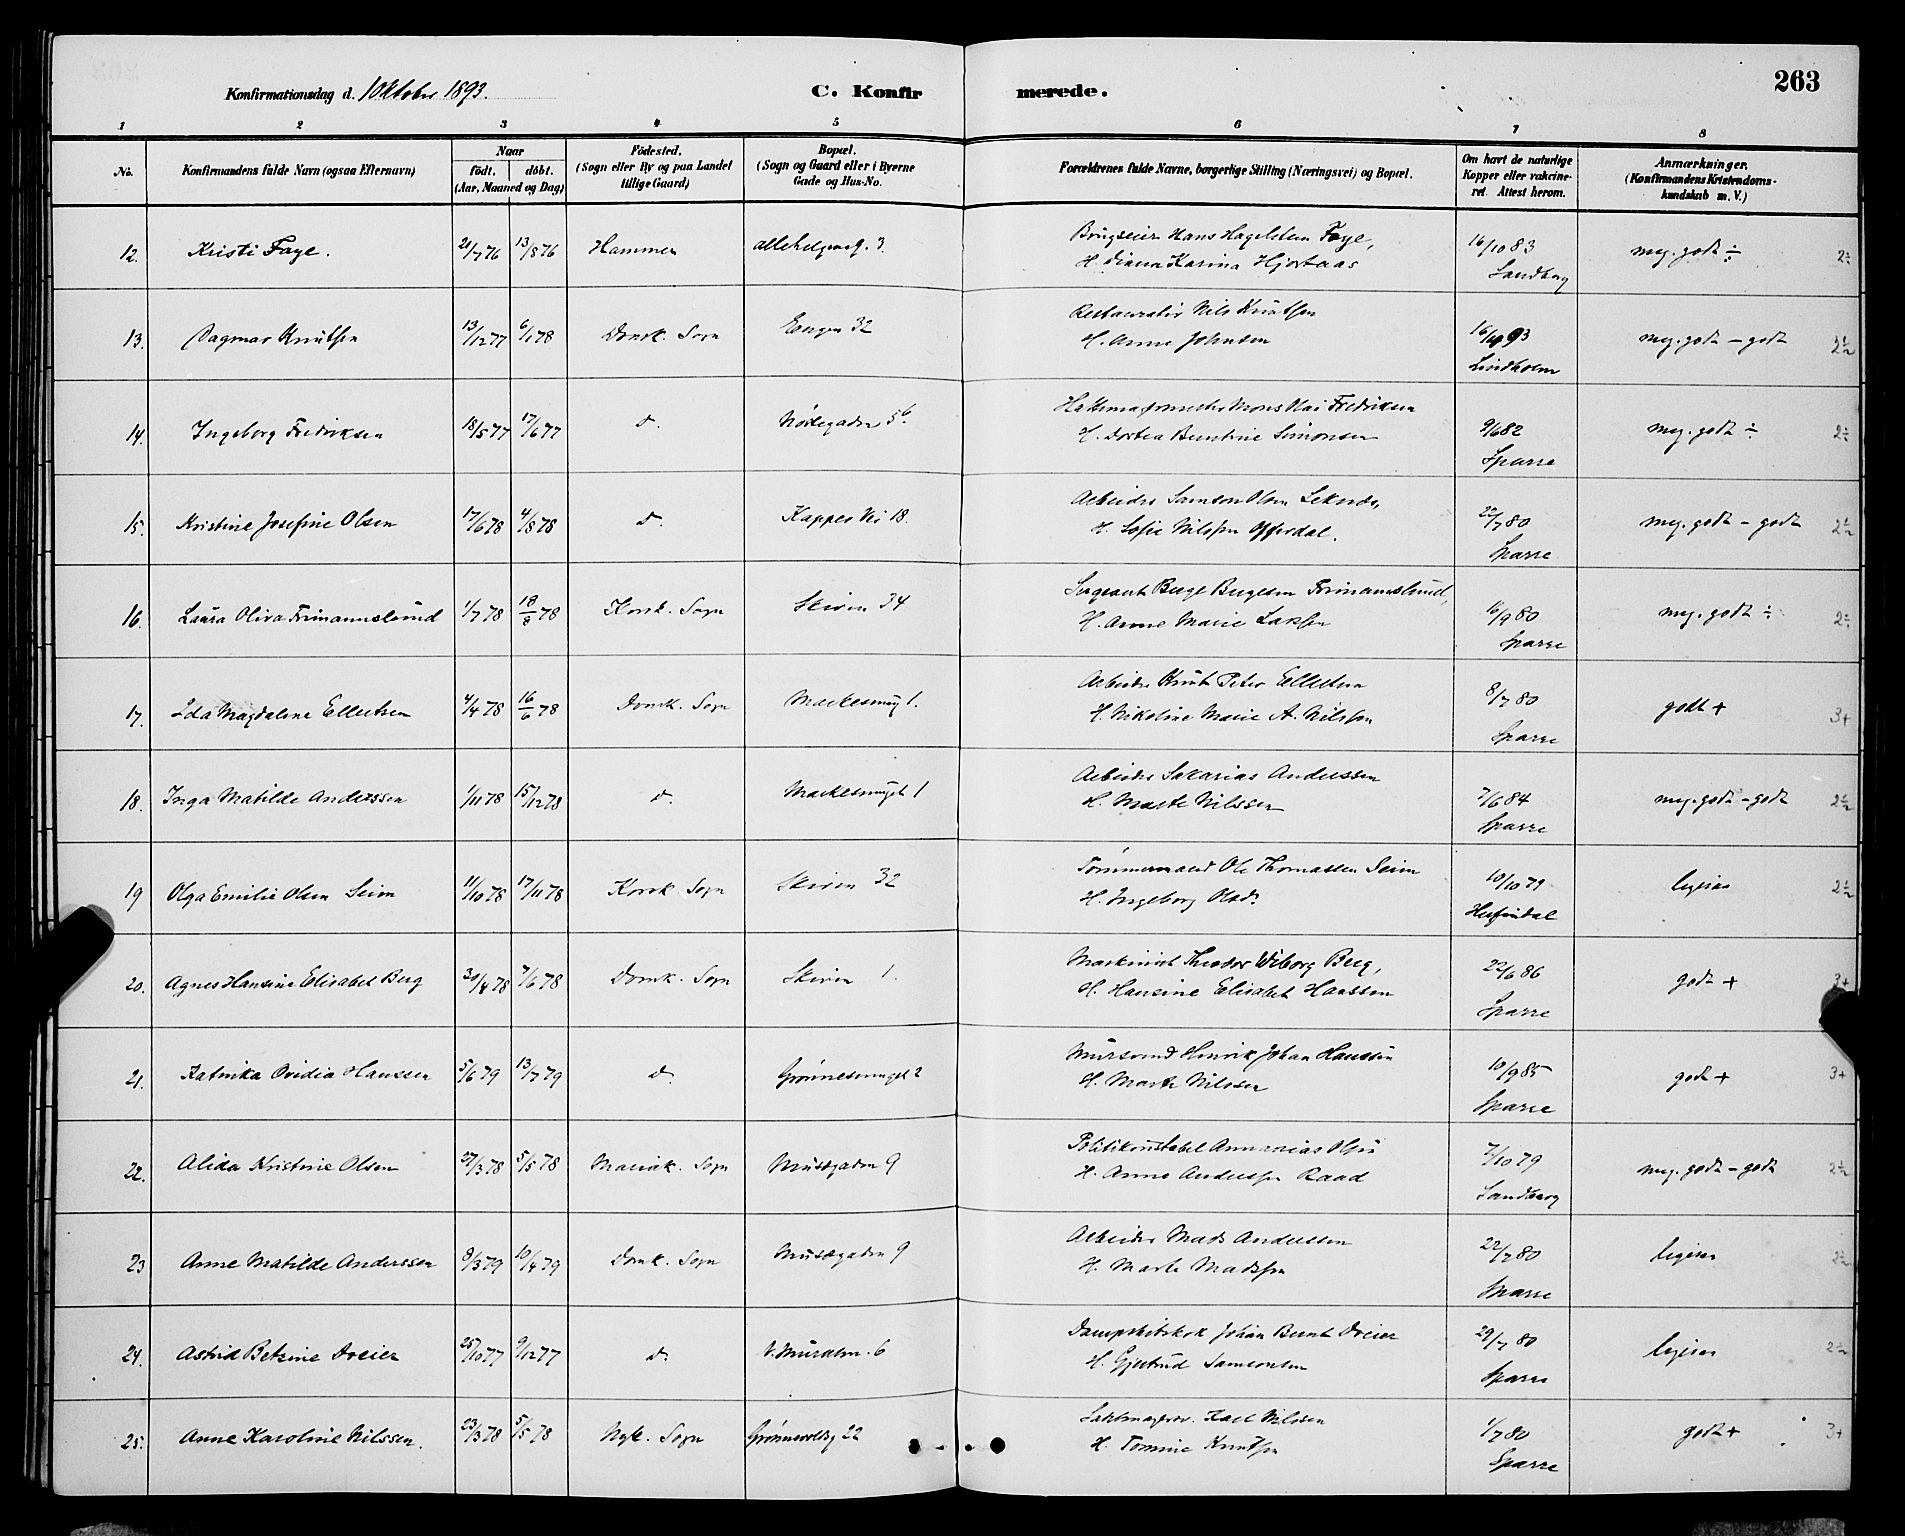 263
Konfirmationsdag d. 1 Oktober 1893.
C. Konfirmerede.
1 2 3 4 5 6 7 8
No. Konfirmandens fulde Navn (ogsaa Efternavn) Naar født. døbt. (Aar, Maaned og Dag) Fødested. (Sogn eller By og paa Landet tillige Gaard) Bopæl. (Sogn og Gaard eller i Byerne Gade og Hus-No. Forældrenes fulde Navne, borgerlige Stilling (Næringsvei) og Bopæl. Om havt de naturlige Kopper eller vakcineret. Attest herom. Anmærkninger. (Konfirmandens Kristendomskundskab m. V.)
12. Kristi Faye. 21/7 76 13/8 76 Hammer allehelgensg. 3. Brugseier Hans Hagelsteen Faye, 16/10 83 meg. godt ÷ 2÷
H. Diana Karina Hjortaas Sandberg
13. Dagmar Knutsen 13/12 77 6/1 78 Domk. Sogn Engen 32 Restauratør Nils Knutsen 16/9 93 meg. godt - godt 2½
H. Anne Johnsen Lindholm
14. Ingeborg Fredriksen 18/5 77 17/6 77 d. Nørregaden 56 Hattemagermester Mons Olai Fredriksen 9/6 82 meg. godt ÷ 2÷
H. Dortea Berntine Simonsen Sparre
15. Kristine Josefine Olsen 17/6 78 4/8 78 d. Kappes Vei 18. Arbeider Samson Olsen 22/7 80 meg. godt - godt 2½
H. Sofie Nilssen Offerdal. Sparre
16. Laura Oliva Frimannslund 1/7 78 18/8 78 Korsk. Sogn Skiven 34 Sergeant Berge Bergesen Frimannslund, 6/9 80 meg. godt ÷ 2÷
H. Anne Marie Larsen Sparre
17. Ida Magdalene Ellertsen 4/4 78 16/6 78 Domk. Sogn Markesmug 1. Arbeider Knut Peter Ellertsen 8/7 80 godt + 3+
H. Nikoline Marie A. Nilsen Sparre
18. Inga Matilde Anderssen 1/11 78 15/12 78 d. Markesmuget 1 Arbeider Sakarias Anderssen 7/6 84 meg. godt - godt 2½
H. Marte Nilssen Sparre
19 Olga Emilie Olsen Seim 11/10 78 17/11 78 Korsk. Sogn Skiven 32 Tømmermand Ole Thomassen Seim 10/10 79 ligesaa 2½
H. Ingeborg Olsdr. Herfindal
20. Agnes Hansine Elisabet Berg 30/4 78 7/6 78 Domk. Sogn Skiven 1. Maskinist Theodor Wiborg Berg, 22/6 86 godt + 3+
H. Hansine Elisabet Haassen Sparre
21. Katinka Ovidia Hanssen 5/6 79 13/7 79 d. Grønnesmuget 2 Mursvend Henrik Johan Hanssen 10/9 85 godt + 3+
H. Marte Nilssen Sparre
22. Alida Kristine Olsen 27/3 78 5/5 78 Mariak. Sogn Musegaden 9 Politikonstabel Annanias Olsen 7/10 79 meg. godt - godt 2½
H. Anna Anderssen Raad Sandberg
23 Anne Matilde Anderssen 8/3 79 10/4 79 Domk. Sogn Musegaden 9 Arbeider Mads Anderssen 22/7 80 ligesaa 2½
H. Marte Madssen Sparre
24. Astrid Betzine Dreier 25/10 77 9/12 77 d. V. Muralm. 6 Dampskibskok Johan Bernt Dreier 29/7 80 ligesaa 2½
H. Gjertrud Samsonsen Sparre
25. Anne Karoline Nilssen. 23/3 78 5/5 78 Nyk. Sogn Grønnevoldg 22 Karl Nilssen 1/7 80 godt + 3+
H. Tomine Knutsen Sparre